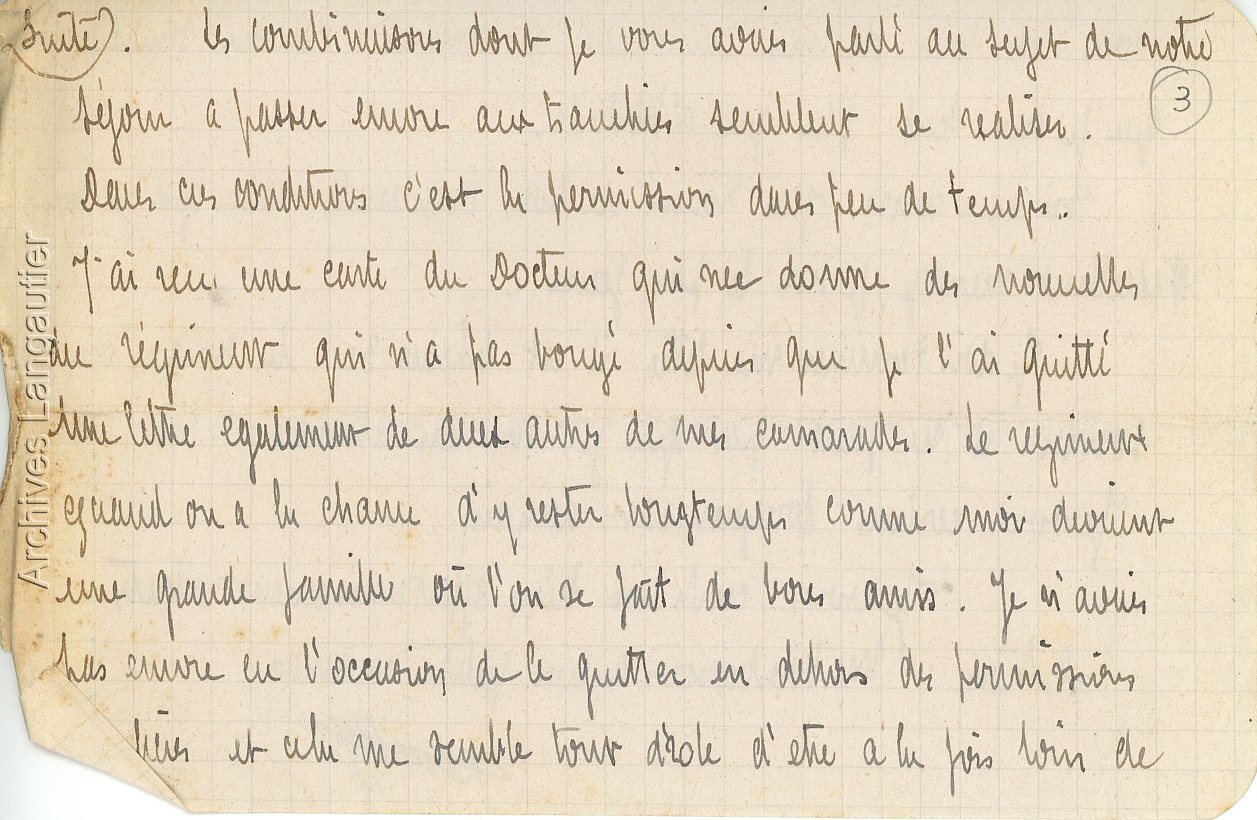 (Suite). Les combinaisons dont je vous avais parlé au sujet de notre
3
séjour a passer encore aux tranchées semblent se realiser.
Dans ces conditions c'est la permission dans peu de temps.
J'ai recu une carte du Docteur qui me donne des nouvelles
du régiment qui n'a pas bougé depuis que je l'ai quitté
Une lettre egalement de deux autres de mes camarades. Le regiment
quand on a la chance d'y rester longtemps comme moi devient
une grande famille où l'on se fait de bons amis. Je n'avais
pas encore eu l'occasion de le quitter en dehors des permissions
et cela me semble tout drole d'etre a la fois loin de
Archives Langautier